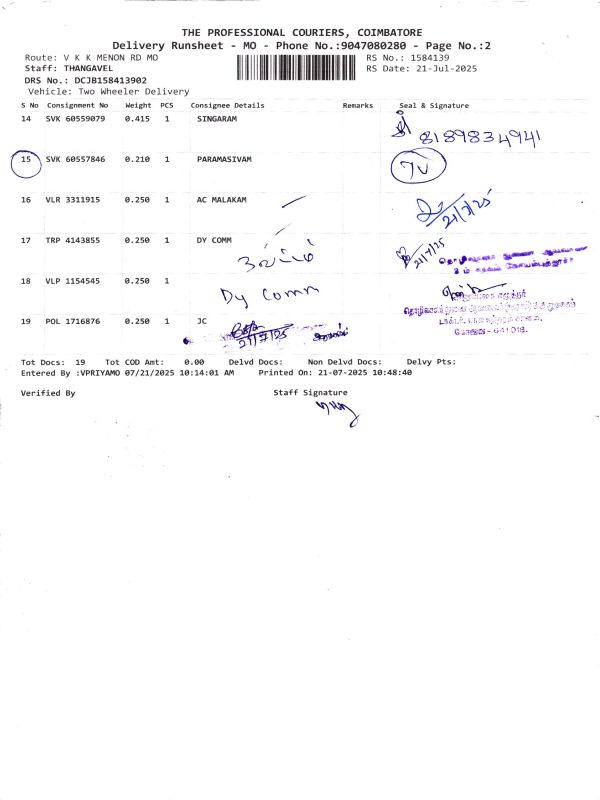 THE PROFESSIONAL COURIERS, COIMBATORE
Delivery Runsheet - MO - Phone No.:9047080280 - Page No.:2
Route: V K K MENON RD MO
RS No.: 1584139
Staff: THANGAVEL
RS Date: 21-Jul-2025
DRS No.: DCJB158413902
Vehicle: Two Wheeler Delivery
S No Consignment No Weight PCS Consignee Details Remarks Seal & Signature
14 SVK 60559079 0.415 1 SINGARAM
8189834941
15 SVK 60557846 0.210 1 PARAMASIVAM
16 VLR 3311915 0.250 1 AC MALAKAM
21/7/25
17 TRP 4143855 0.250 1 DY COMM
21/7/25
18 VLP 1154545 0.250 1
Dy Comm
கோவை - 641 018.
19 POL 1716876 0.250 1 JC
21/7/25
Tot Docs: 19 Tot COD Amt: 0.00 Delvd Docs: Non Delvd Docs: Delvy Pts:
Entered By :VPRIYAMO 07/21/2025 10:14:01 AM Printed On: 21-07-2025 10:48:40
Verified By Staff Signature